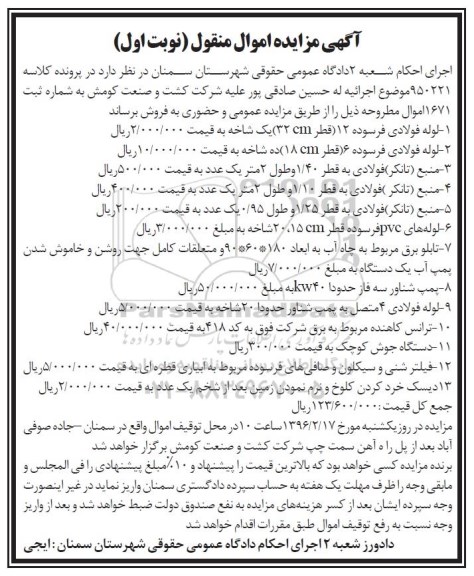 آگهی مزایده اموال منقول (نوبت اول)
اجرای احکام شعبه ۲دادگاه عمومی حقوقی شهرستان سمنان در نظر دارد در پرونده کلاسه
۹۵۰۲۲۱موضوع اجرائیه له حسین صادقی پور علیه شرکت کشت و صنعت کومش به شماره ثبت
۱۶۷۱اموال مطروحه ذیل را از طریق مزایده عمومی و حضوری به فروش برساند
۱-لوله فولادی فرسوده ۱۲(قطر ۳۲ cm)یک شاخه به قیمت ۲/۰۰۰/۰۰۰ریال
۲-لوله فولادی فرسوده ۶(قطر ۱۸ cm)ده شاخه به قیمت ۱۰/۰۰۰/۰۰۰ریال
۳-منبع (تانکر)فولادی به قطر ۱/۴۰وطول ۲متر یک عدد به قیمت ۵۰۰/۰۰۰ریال
۴-منبع (تانکر)فولادی به قطر ۱/۱۰و طول ۲متر یک عدد به قیمت ۴۰۰/۰۰۰ریال
۵-منبع (تانکر)فولادی به قطر ۱/۲۵و طول ۰/۹۵یک عدد به قیمت ۲۰۰/۰۰۰ریال
۶-لوله‌های pvcفرسوده قطر ۱۵ cm،۲۰شاخه به مبلغ ۳/۰۰۰/۰۰۰ریال
۷-تابلو برق مربوط به چاه آب به ابعاد ۱۸۰*۶۰*۹۰و متعلقات کامل جهت روشن و خاموش شدن
پمپ آب یک دستگاه به مبلغ ۷/۰۰۰/۰۰۰ریال
۸-پمپ شناور سه فاز حدودا ۴۰kwبه مبلغ ۵۰/۰۰۰/۰۰۰ریال
۹-لوله فولادی ۴متصل به پمپ شناور حدودا ۲۰شاخه به قیمت ۵/۰۰۰/۰۰۰ریال
۱۰-ترانس کاهنده مربوط به برق شرکت فوق به کد ۴۱۸به قیمت ۴۰/۰۰۰/۰۰۰ریال
۱۱-دستگاه جوش کوچک به قیمت ۳۰۰/۰۰۰ریال
۱۲-فیلتر شنی و سیکلون و صافی‌های فرسوده مربوط به آبیاری قطره‌ای به قیمت ۵/۰۰۰/۰۰۰ریال
۱۳دیسک خرد کردن کلوخ و نرم نمودن زمین بعد از شخم یک عدد به قیمت ۲/۰۰۰/۰۰۰ریال
جمع کل قیمت :۱۲۳/۶۰۰/۰۰۰ریال
مزایده در روز یکشنبه مورخ ۱۳۹۶/۲/۱۷ساعت ۱۰در محل توقیف اموال واقع در سمنان –جاده صوفی
آباد بعد از پل را ه آهن سمت چپ شرکت کشت و صنعت کومش برگزار خواهد شد
برنده مزایده کسی خواهد بود که بالاترین قیمت را پیشنهاد و ۱۰٪مبلغ پیشنهادی را فی المجلس و
مابقی وجه را ظرف مهلت یک هفته به حساب سپرده دادگستری سمنان واریز نماید در غیر اینصورت
وجه سپرده ایشان بعد از کسر هزینه‌های مزایده به نفع صندوق دولت ضبط خواهد شد و بعد از واریز
وجه نسبت به رفع توقیف اموال طبق مقررات اقدام خواهد شد
دادورز شعبه ۲ اجرای احکام دادگاه عمومی حقوقی شهرستان سمنان : ایجی